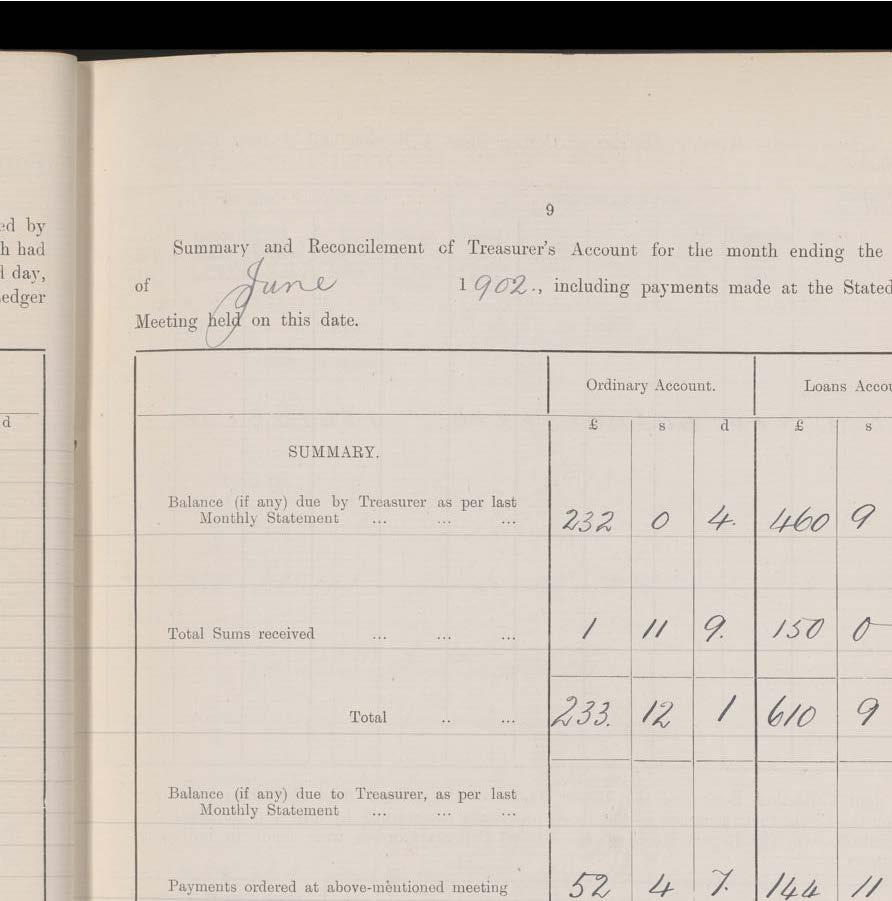 9
ed by
h had
l day,
edger
d
Summary and Reconcilement of Treasurer's Account for the month ending the
of June 1902., including payments made at the Stated
Meeting held on this date.
Ordinary Account. Loans Accou
£ s d £ s
SUMMARY.
Balance (if any) due by Treasurer as per last
Monthly Statement ... ... ... 232 0 4. 460 9
Total Sums received ... ... ... 1 11 9. 150 0
Total .. ... 233. 12 1 610 9
Balance (if any) due to Treasurer, as per last
Monthly Statement ... ... ...
Payments ordered at above-mentioned meeting 52 4 7. 144 11